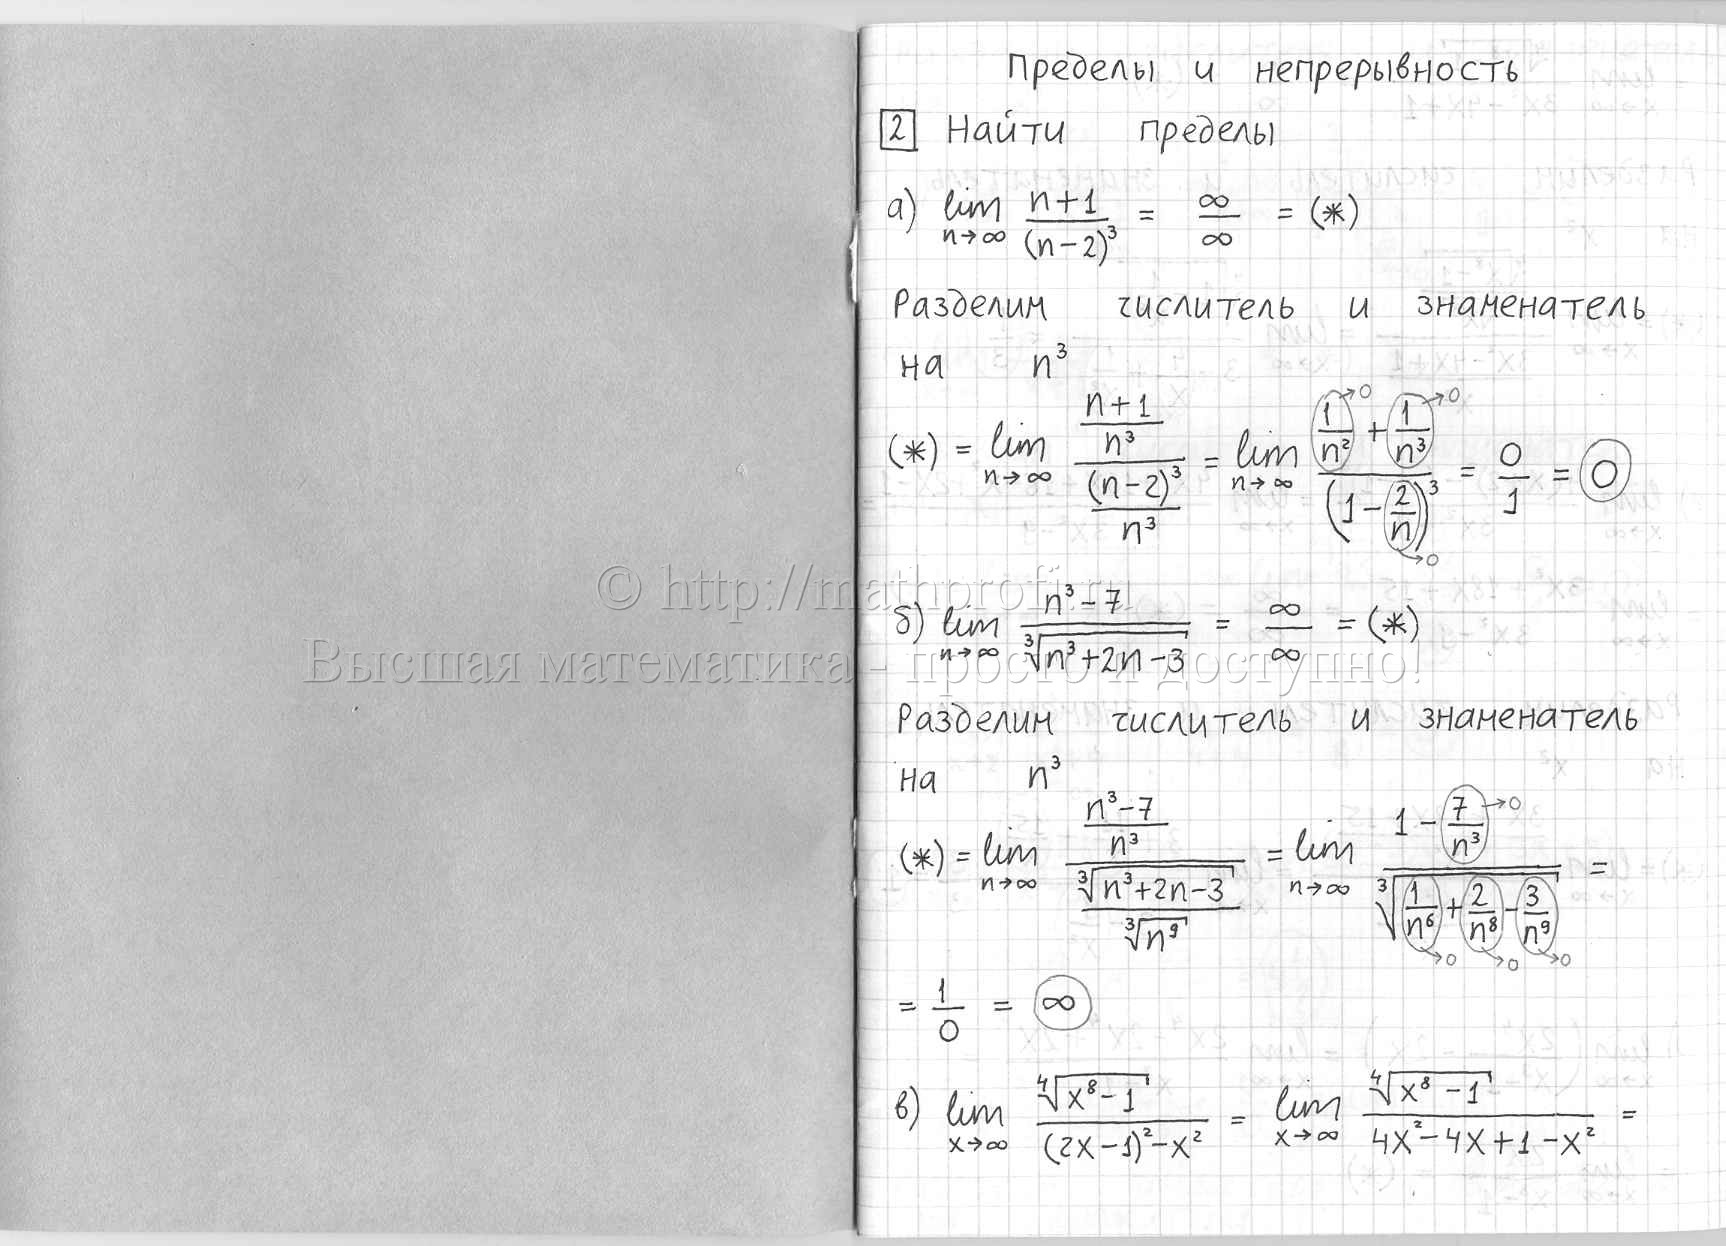 Пределы и непрерывность
2 Найти пределы
а) lim n→∞ (n+1)/(n-2)³ = ∞/∞ = (*)
Разделим числитель и знаменатель
на n³
(*) = lim n→∞ ((n+1)/n³)/((n-2)³/n³) = lim n→∞ (1/n² →0 + 1/n³ →0)/(1 - 2/n →0)³ = 0/1 = 0
© http://mathprofi.ru
б) lim n→∞ (n³-7)/∛(n³+2n-3) = ∞/∞ = (*)
Высшая математика - просто и доступно!
Разделим числитель и знаменатель
на n³
(*) = lim n→∞ ((n³-7)/n³)/(∛(n³+2n-3)/∛(n⁹)) = lim n→∞ (1 - 7/n³ →0)/∛(1/n⁶ →0 + 2/n⁸ →0 - 3/n⁹ →0) =
= 1/0 = ∞
в) lim x→∞ ∜(x⁸-1)/((2x-1)²-x²) = lim x→∞ ∜(x⁸-1)/(4x²-4x+1-x²) =